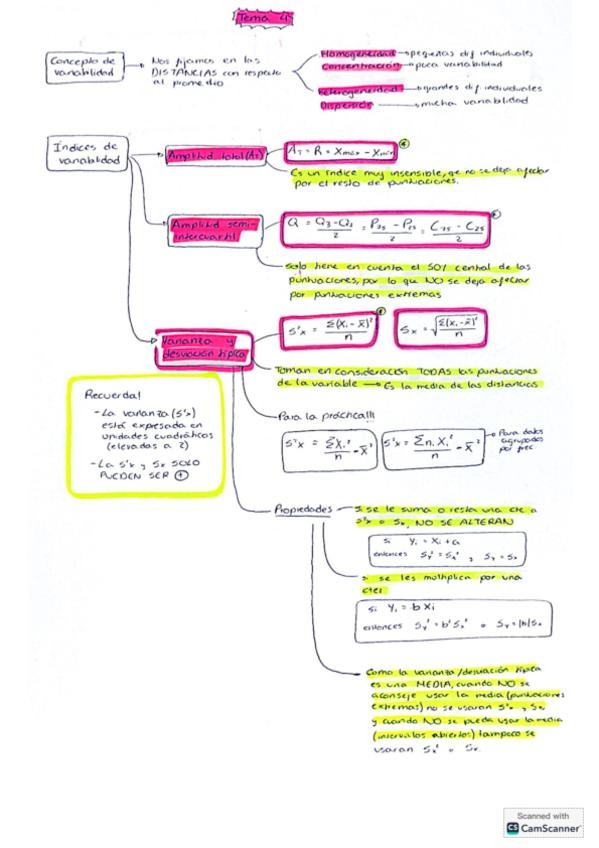 Tema 4
Concepto de
variabilidad
Nos fijamos en las
DISTANCIAS con respecto
al promedio
Homogeneidad → pequeñas dif individuales
Concentración → poca variabilidad
Heterogeneidad → grandes dif individuales
Dispersión → mucha variabilidad
Índices de
variabilidad
Amplitud total (AT)
AT = R = Xmáx - Xmín
Es un índice muy insensible, que no se deja afectar
por el resto de puntuaciones.
Amplitud semi-
intercuartil
Q = Q3-Q1/2 = P75 - P25/2 = C75 - C25/2
Solo tiene en cuenta el 50% central de las
puntuaciones, por lo que NO se deja afectar
por puntuaciones extremas
Varianza y
desviación típica
S²x = Σ(Xi - x̄)²/n
Sx = √Σ(xi - x̄)²/n
Toman en consideración TODAS las puntuaciones
de la variable → Es la media de las distancias
Recuerda!
- La varianza (S²x)
está expresada en
unidades cuadráticas
(elevadas a 2)
- La S²x y Sx SOLO
PUEDEN SER +
Para la práctica!!!
S²x = ΣXi²/n - x̄²
S²x = Σni Xi²/n - x̄²
Para datos
agrupados
por frec
Propiedades
Si se le suma o resta una cte a
S²x o Sx, NO SE ALTERAN
si Yi = Xi + a
entonces Sy² = Sx² , Sy = Sx
Si se les multiplica por una
cte:
si Yi = b Xi
entonces Sy² = b² Sx² o Sy = |b| Sx
Como la varianza/desviación típica
es una MEDIA, cuando NO se
aconseje usar la media (puntuaciones
extremas) no se usaran S²x y Sx
y cuando NO se pueda usar la media
(intervalos abiertos) tampoco se
usaran Sx² o Sx.
Scanned with
CS CamScanner